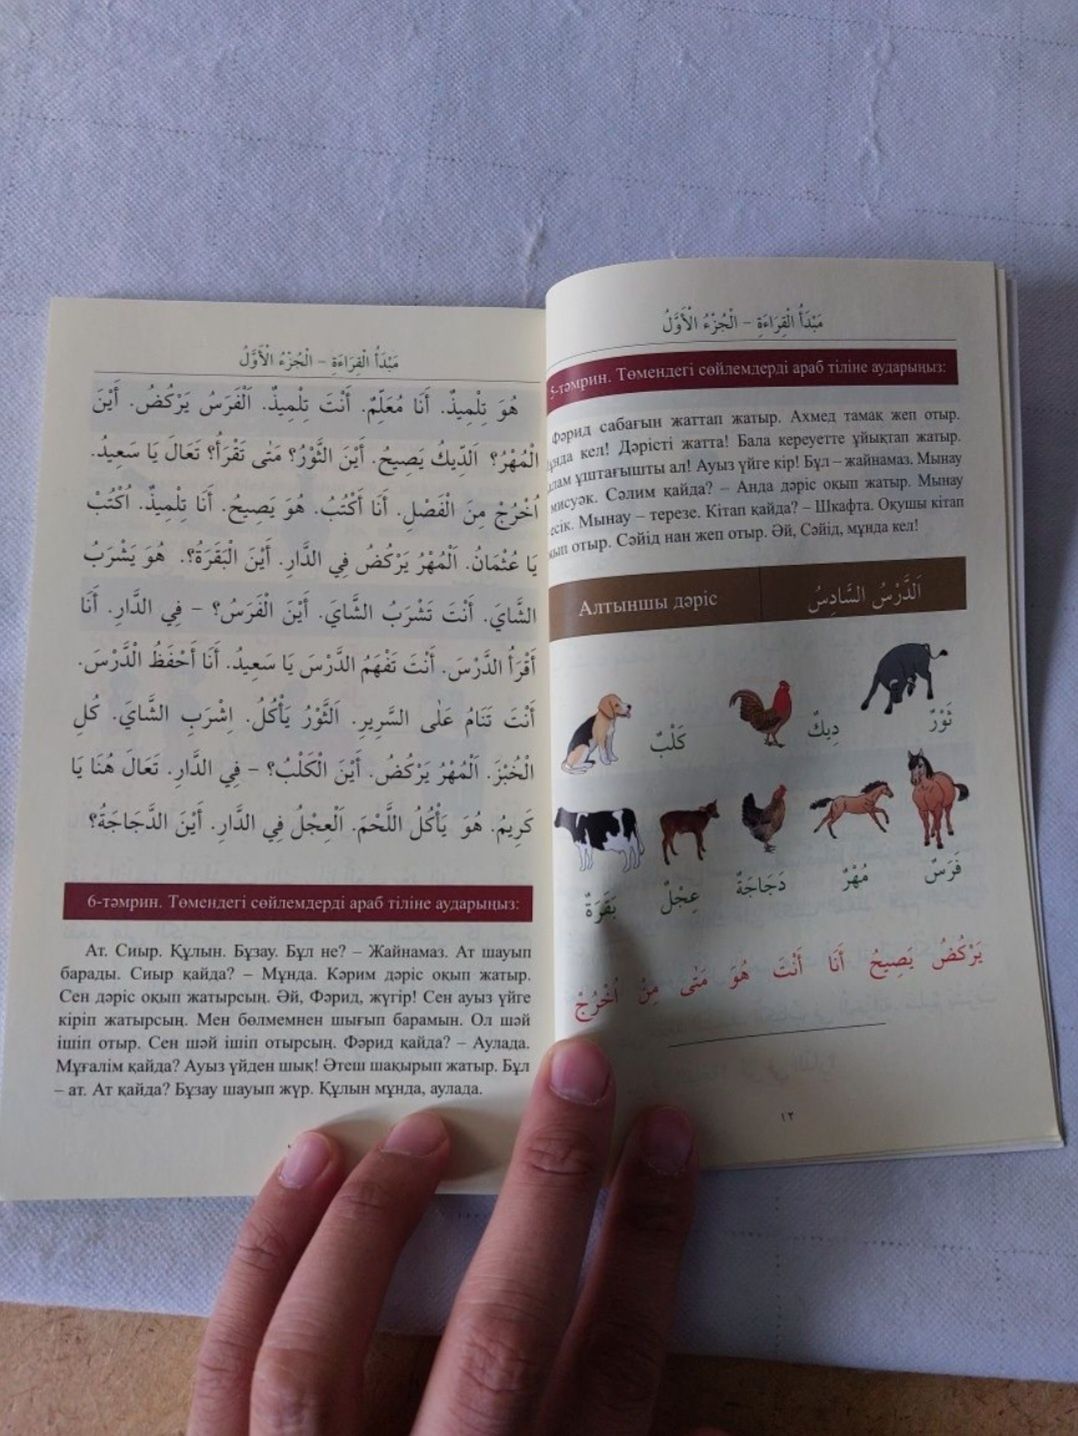 مَبْدَأُ الْقِرَاءَةِ – الْجُزْءُ الْأَوَّلُ
5-тәмрин. Төмендегі сөйлемдерді араб тіліне аударыңыз:
Фәрид сабағын жаттап жатыр. Ахмед тамақ жеп отыр.
кел! Дәрісті жатта! Бала кереуетте ұйықтап жатыр.
ұштағышты ал! Ауыз үйге кір! Бұл – жайнамаз. Мынау
мисуәк. Сәлим қайда? – Анда дәріс оқып жатыр. Мынау
есік. Мынау – терезе. Кітап қайда? – Шкафта. Оқушы кітап
отыр. Сәйід нан жеп отыр. Әй, Сәйід, мұнда кел!
اَلدَّرْسُ السَّادِسُ
Алтыншы дәріс
ثَوْرٌ دِيكٌ كَلْبٌ
فَرَسٌ مُهْرٌ دَجَاجَةٌ عِجْلٌ بَقَرَةٌ
يَرْكُضُ يَصِيحُ أَنَا أَنْتَ هُوَ مَتٰى مِنْ اُخْرُجْ
١٢
مَبْدَأُ الْقِرَاءَةِ – الْجُزْءُ الْأَوَّلُ
هُوَ تِلْمِيذٌ. أَنَا مُعَلِّمٌ. أَنْتَ تِلْمِيذٌ. اَلْفَرَسُ يَرْكُضُ. أَيْنَ
الْمُهْرُ؟ اَلدِّيكُ يَصِيحُ. أَيْنَ الثَّوْرُ؟ مَتٰى تَقْرَأُ؟ تَعَالَ يَا سَعِيدُ.
اُخْرُجْ مِنَ الْفَصْلِ. أَنَا أَكْتُبُ. هُوَ يَصِيحُ. أَنَا تِلْمِيذٌ. اُكْتُبْ
يَا عُثْمَانُ. اَلْمُهْرُ يَرْكُضُ فِي الدَّارِ. أَيْنَ الْبَقَرَةُ؟. هُوَ يَشْرَبُ
الشَّايَ. أَنْتَ تَشْرَبُ الشَّايَ. أَيْنَ الْفَرَسُ؟ – فِي الدَّارِ. أَنَا
أَقْرَأُ الدَّرْسَ. أَنْتَ تَفْهَمُ الدَّرْسَ يَا سَعِيدُ. أَنَا أَحْفَظُ الْدَّرْسَ.
أَنْتَ تَنَامُ عَلٰى السَّرِيرِ. اَلثَّوْرُ يَأْكُلُ. اِشْرَبِ الشَّايَ. كُلِ
الْخُبْزَ. اَلْمُهْرُ يَرْكُضُ. أَيْنَ الْكَلْبُ؟ – فِي الدَّارِ. تَعَالَ هُنَا يَا
كَرِيمُ. هُوَ يَأْكُلُ اللَّحْمَ. اَلْعِجْلُ فِي الدَّارِ. أَيْنَ الدَّجَاجَةُ؟
6-тәмрин. Төмендегі сөйлемдерді араб тіліне аударыңыз:
Ат. Сиыр. Құлын. Бұзау. Бұл не? – Жайнамаз. Ат шауып
барады. Сиыр қайда? – Мұнда. Кәрим дәріс оқып жатыр.
Сен дәріс оқып жатырсың. Әй, Фәрид, жүгір! Сен ауыз үйге
кіріп жатырсың. Мен бөлмемнен шығып барамын. Ол шәй
ішіп отыр. Сен шәй ішіп отырсың. Фәрид қайда? – Аулада.
Мұғалім қайда? Ауыз үйден шық! Әтеш шақырып жатыр. Бұл
– ат. Ат қайда? Бұзау шауып жүр. Құлын мұнда, аулада.